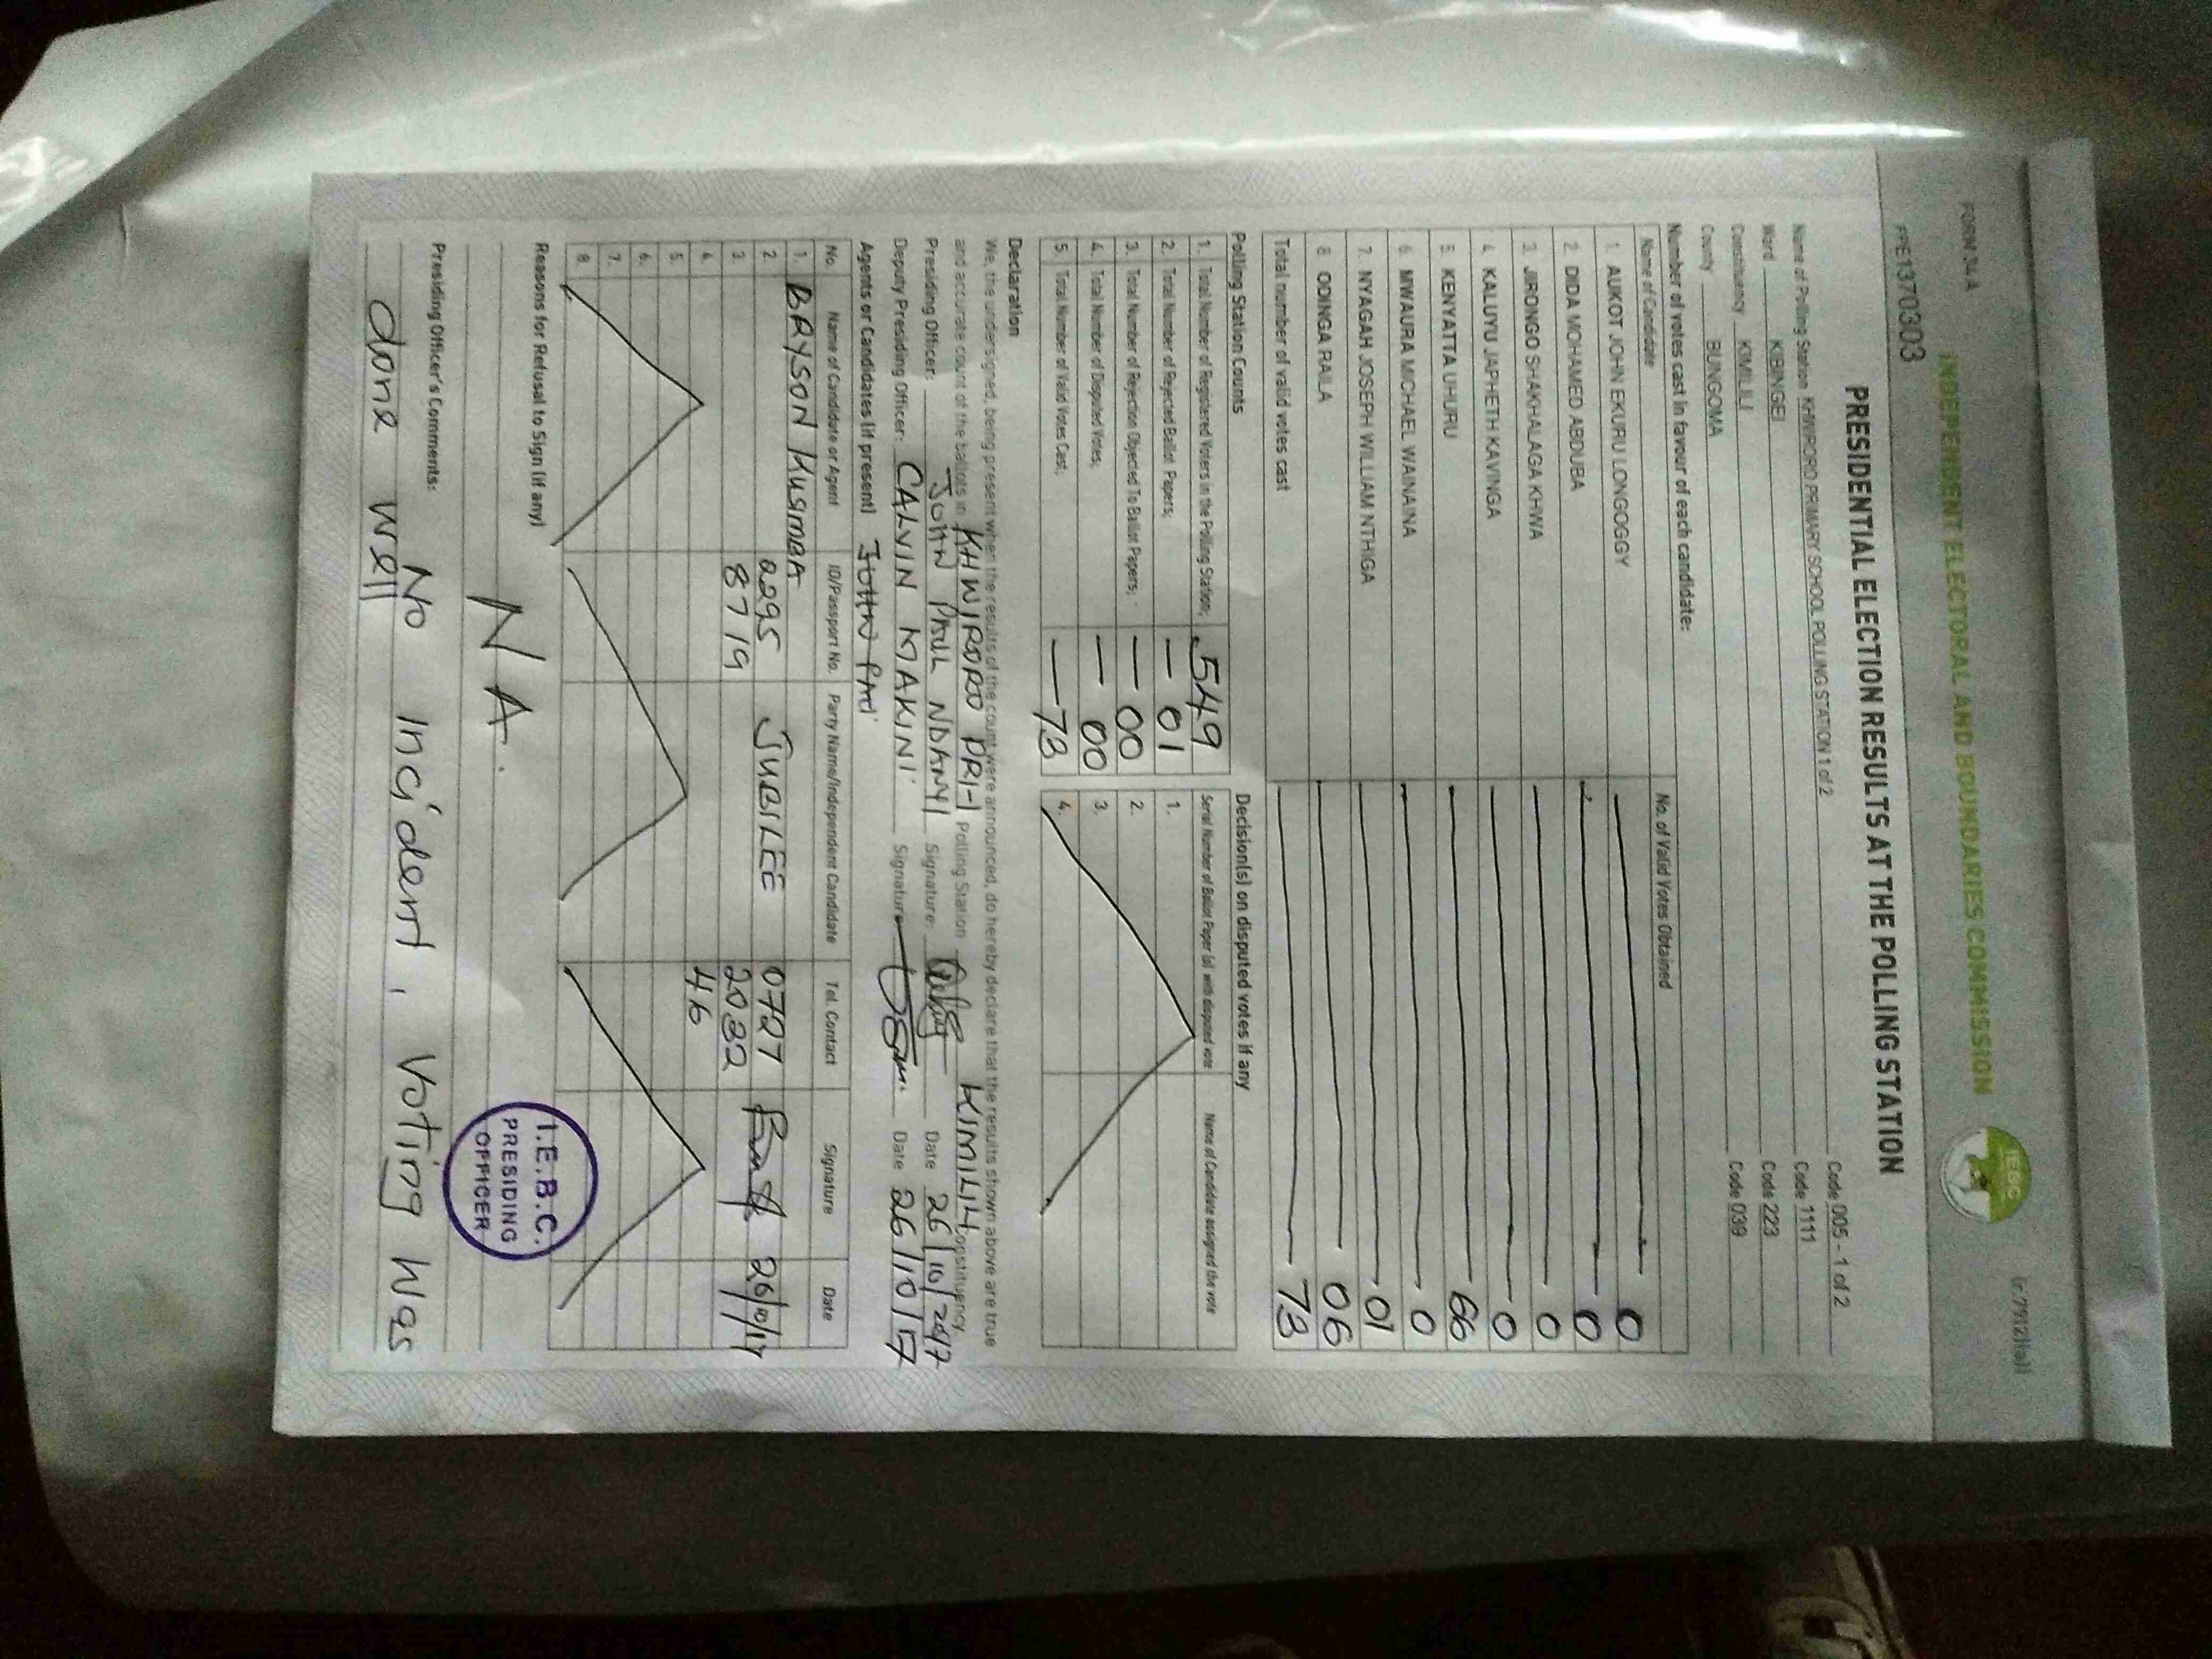 FORM 34A
(r.79(2)(a))
INDEPENDENT ELECTORAL AND BOUNDARIES COMMISSION
IEBC
PE1370303
PRESIDENTIAL ELECTION RESULTS AT THE POLLING STATION
Name of Polling Station KHWIRORO PRIMARY SCHOOL POLLING STATION 1 of 2 Code 005 - 1 of 2
Ward KIBINGEI Code 1111
Constituency KIMILILI Code 223
County BUNGOMA Code 039
Number of votes cast in favour of each candidate:
Name of Candidate No. of Valid Votes Obtained
1. AUKOT JOHN EKURU LONGOGGY 0
2. DIDA MOHAMED ABDUBA 0
3. JIRONGO SHAKHALAGA KHWA 0
4. KALUYU JAPHETH KAVINGA 0
5. KENYATTA UHURU 66
6. MWAURA MICHAEL WAINAINA 0
7. NYAGAH JOSEPH WILLIAM NTHIGA 01
8. ODINGA RAILA 06
Total number of valid votes cast 73
Polling Station Counts
1. Total Number of Registered Voters in the Polling Station; 549
2. Total Number of Rejected Ballot Papers; 01
3. Total Number of Rejection Objected To Ballot Papers; 00
4. Total Number of Disputed Votes; 00
5. Total Number of Valid Votes Cast; 73
Decision(s) on disputed votes if any
Serial Number of Ballot Paper (s) with disputed vote Name of Candidate assigned the vote
1.
2.
3.
4.
Declaration
We, the undersigned, being present when the results of the count were announced, do hereby declare that the results shown above are true
and accurate count of the ballots in KHWIRORO PRI-1 Polling Station KIMILILI Constituency
Presiding Officer: JOHN PAUL NDANYI Signature: Date 26/10/2017
Deputy Presiding Officer: CALVIN MAKINI Signature Date 26/10/17
Agents or Candidates (if present) JOHN
No. Name of Candidate or Agent ID/Passport No. Party Name/Independent Candidate Tel. Contact Signature Date
1. BRYSON KUSIMBA
2. 2295 JUBILEE 0727 26/10/17
3. 8719 2032
4. 46
5.
6.
7.
8.
Reasons for Refusal to Sign (if any)
N A.
I.E.B.C.
PRESIDING
OFFICER
Presiding Officer's Comments:
No incident, Voting was
done well